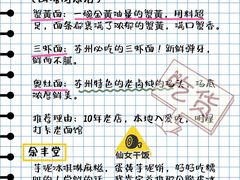 蟹黄面：一碗金黄油量的蟹黄，用料超
足，面条都裹满了浓郁的蟹黄，满口蟹香。
三虾面：苏州必吃的三虾面！新鲜弹牙，
鲜而不腻。
奥灶面：苏州特色的老卤炖的
浓厚鲜美。
推荐理由：10年老店，本地人爱吃，明星
打卡老面馆
吃货
余丰堂
仙女干饭
芋泥冰淇淋麻糍，蛋黄芋泥饼，好好吃糯